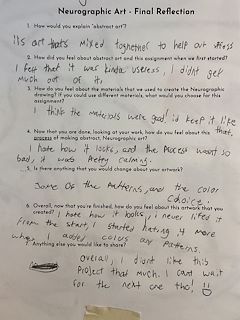 Neurographic Art - Final Reflection
1. How would you explain "abstract art"?
its art thats mixed together to help our stress
2. How did you feel about abstract art and this assignment when we first started?
I felt that it was kinda useless, I didnt get
much out of it.
3. How do you feel about the materials that we used to create the Neurographic
drawing? If you could use different materials, what would you choose for this
assignment?
I think the materials were good. id keep it like
4. Now that you are done, looking at your work, how do you feel about this that.
process of making abstract, Neurographic art?
I hate how it looks, and the process wasnt so
bad, it was pretty calming.
5. Is there anything that you would change about your artwork?
Some of the patterns, and the color
choice.
6. Overall, now that you're finished, how do you feel about this artwork that you
created? I hate how it looks, i never liked it
from the start, I started hating it more
when I added colors and patterns.
7. Anything else you would like to share?
overall, I didnt like this
project that much. I cant wait
for the next one tho! :)